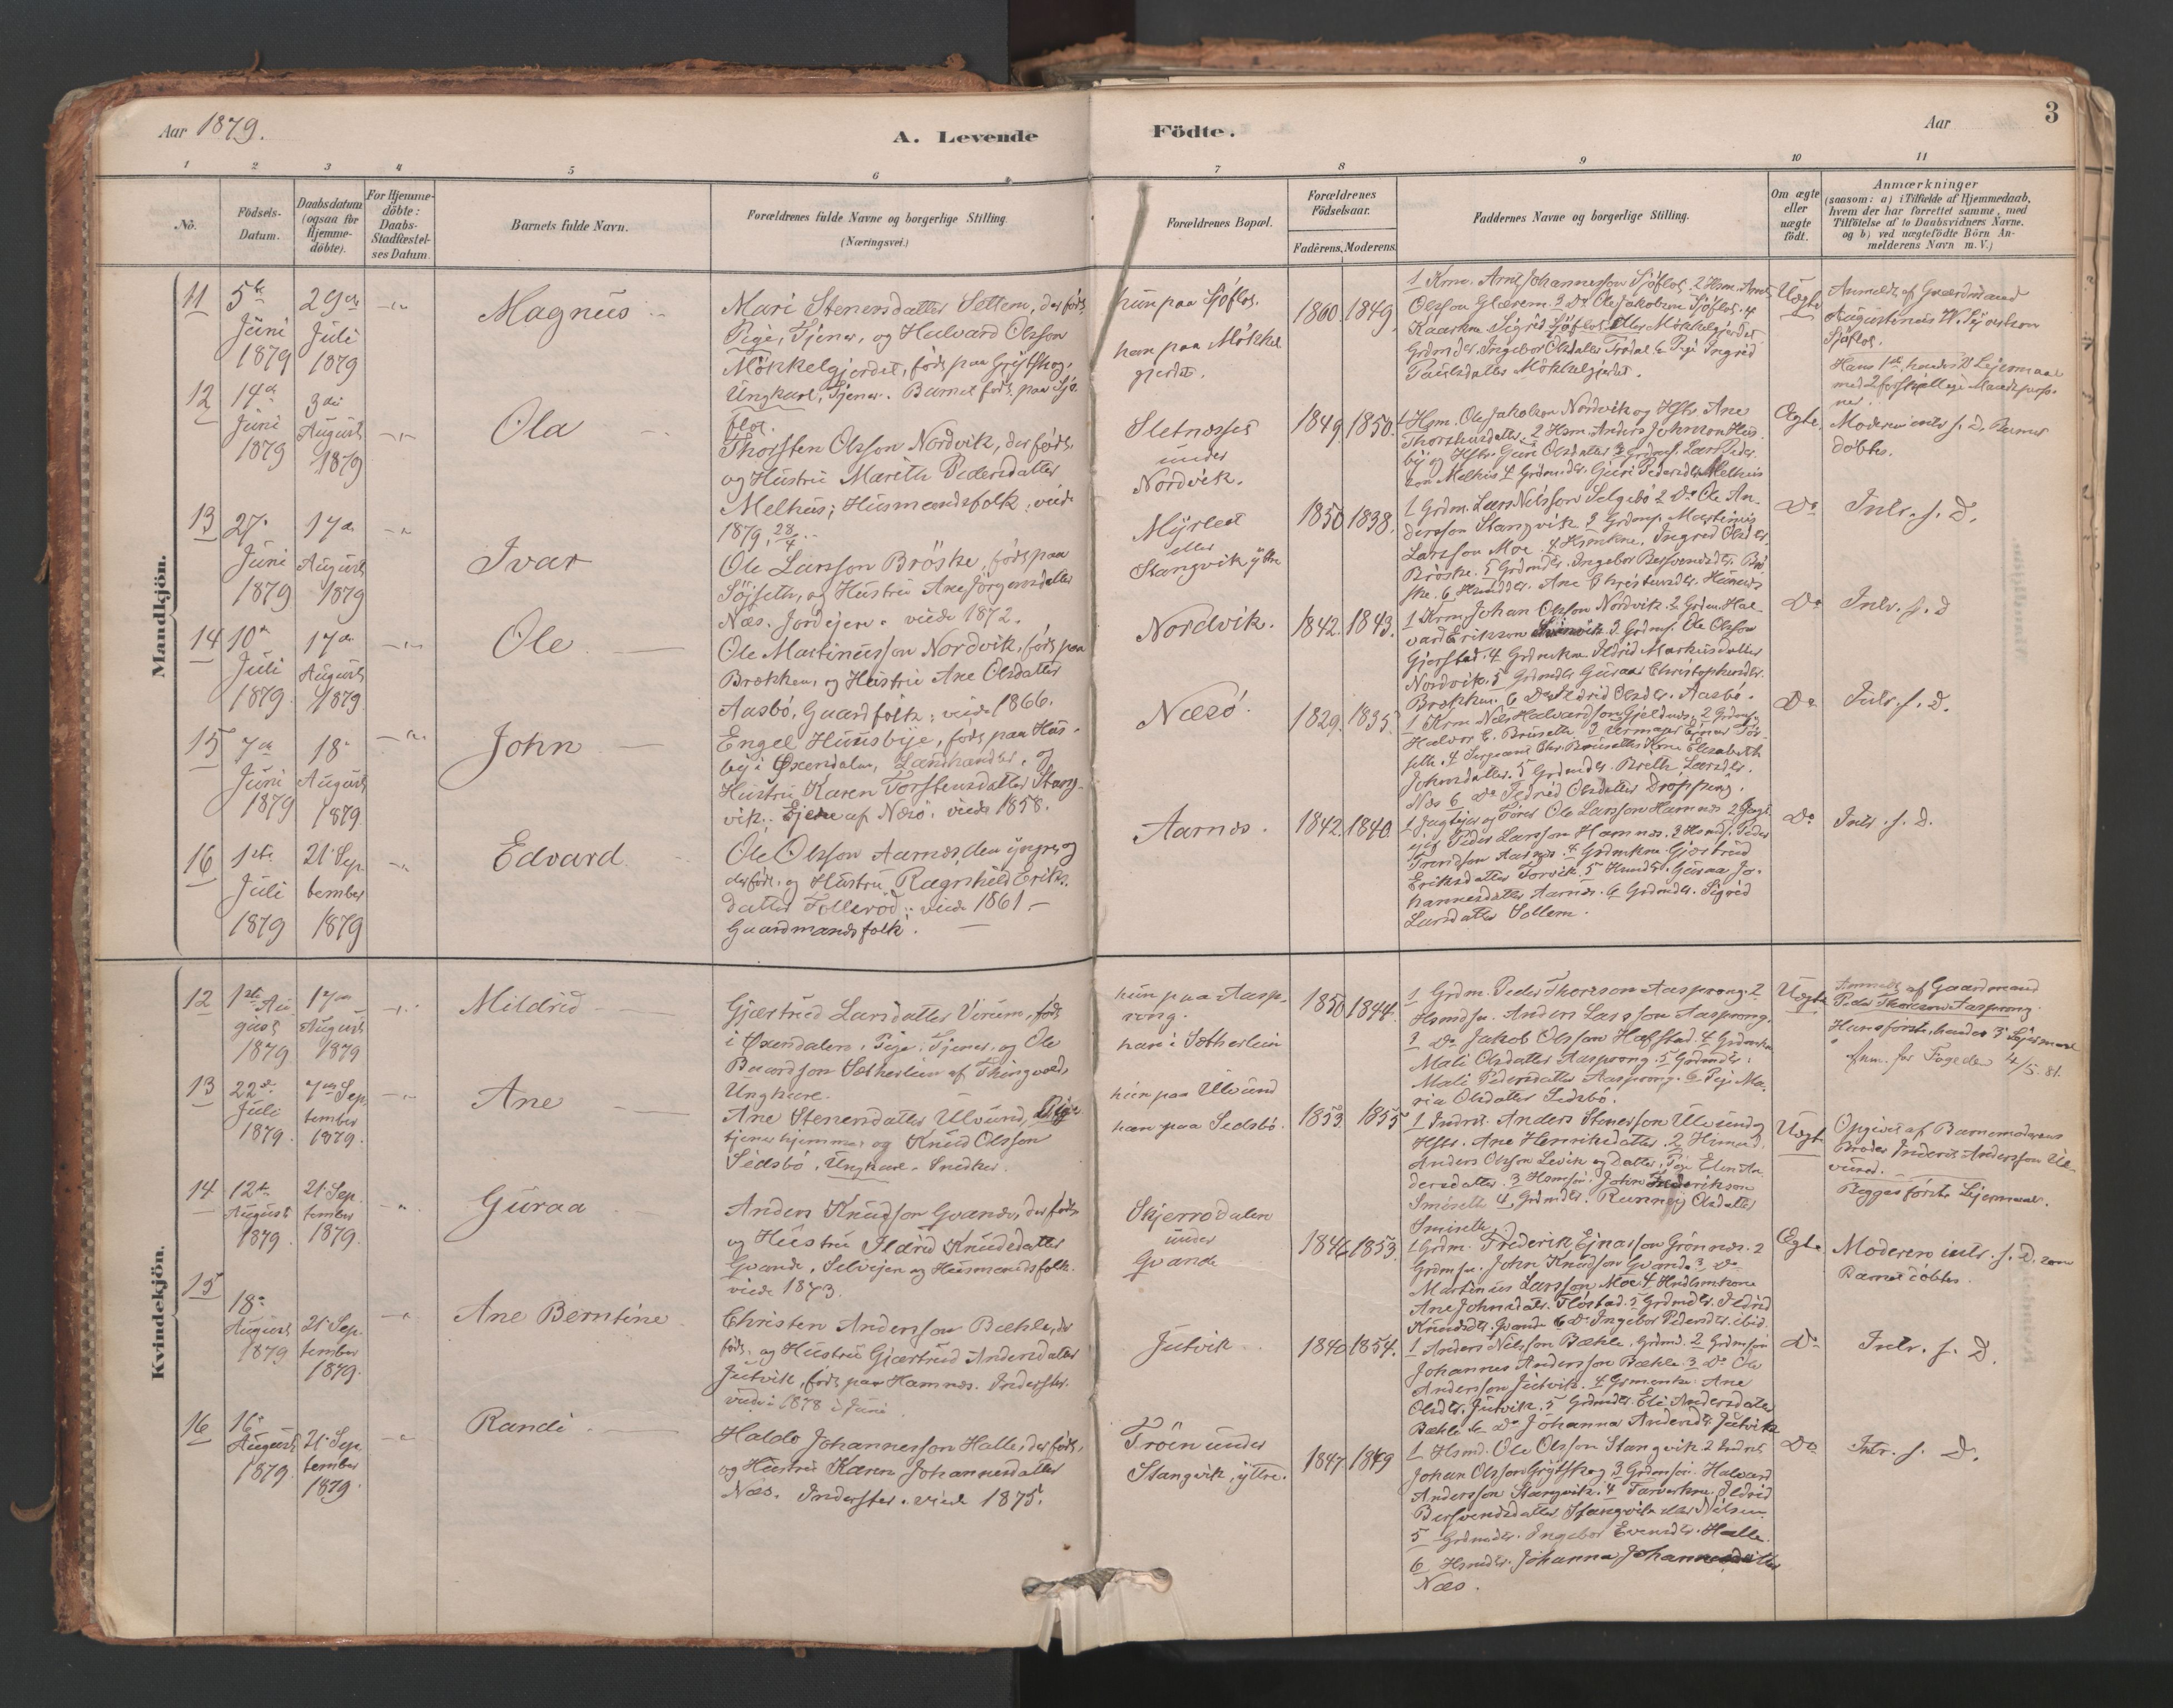 Aar 1879.
A. Levende
Födte.
Aar
3
1 2 3 4 5 6 7 8 9 10 11
No.
Födsels-
Datum.
Daabsdatum
(ogsaa for
Hjemme-
döbte).
For Hjemme-
döbte:
Daabs-
Stadfæstel-
ses Datum.
Barnets fulde Navn.
Forældrenes fulde Navne og borgerlige Stilling.
(Næringsvei.)
Forældrenes Bopæl.
Forældrenes
Födselsaar.
Faderens. Moderens.
Faddernes Navne og borgerlige Stilling.
Om ægte
eller
uægte
født.
Anmærkninger
(saasom: a) i Tilfælde af Hjemmedaab,
hvem der har forrettet samme, med
Tilföielse af to Daabsvidners Navne.
og b) ved uægtefödte Börn An-
melderens Navn m. V.)
Mandkjön.
11
5te
Juni
1879
29de
Juli
1879
Magnus
Mari Stenersdatter Settem, der født,
Pige, Tjener, og Halvard Olsson
Møkkelgjerdet, født paa Grytskog,
Ungkarl, Tjener. Barnet født paa Sjø-
flot.
hun paa Sjøflot.
han paa Møkkel
gjerdet.
1860 1849
1 Krm. Arnt Johannesson Sjøflot. 2 Hsm. Arnt
Olsson Glærem. 3 Do Ole Jakobson Sjøflot. 4
Kaarkne Sigrid Sjøflot eller Møkkelgjerdet
Grdmdr. Ingebor Olsdatter Trødal 6 Pige Ingrid
Paulsdatter Møkkelgjerdet.
Uægte
Anmeldt af Gaardmand
Augustinus W. Sjøflot
Sjøflot.
Hans 1ste, hendes 2 Lejermaal
med 2 forskjellige Mandsperso-
ner.
12
14de
Juni
1879
3die
August
1879
Ola
Thorsten Olsson Nordvik, der født,
og Hustru Marith Pedersdatter
Melhus; Husmandsfolk, viede
1879, 28/4.
Sletnesset
under
Nordvik.
1849. 1850.
1 Hsm. Ole Jakobson Nordvik og Hstr. Ane
Thorstensdatter. 2 Hsm. Anders Johnson Hus-
by og Hstr. Guri Olsdatter 3 Grdms. Lars Peder-
son Melhus 4 Grdmdr. Guri Pedersdtr Melhus
Ægte.
Moderen intr. s. D. Barnet
döbtes.
13
27.
Juni
1879
17de
August
1879
Ivar
Ole Larsson Brøske, født paa
Søjseth, og Hustru Ane Jörgensdatter
Næs. Jordejer. viede 1872.
Myrlest
eller
Stangvik ytre
1850 1838.
1 Grdm. Lars Nilsson Selgebö 2 Do Ole An-
dersson Stangvik 3 Grdms. Martinus
Larsson Moe. 4 Hsmkne. Ingrid Olsdtr.
Brøske. 5 Grdmdr. Ingebor Bersvendsdtr. Brø-
ske. 6 Hsmddr. Ane Christensdtr.
Næs.
Do
Intr. s. D.
14
10de
Juli
1879
17de
August
1879
Ole
Ole Martinusson Nordvik, født paa
Brækken, og Hustru Ane Olsdatter
Aasbö, Gaardfolk; viede 1866.
Nordvik.
1842. 1843.
1 Krm Johan Olsson Nordvik. 2 Grdm. Hal-
vard Erikson Svinvik. 3 Grdms. Ole Olsson
Gjerstad. 4 Grdmkne Ildrid Markusdatter
Nordvik. 5 Grdmdtr Guraa Christophersdtr.
Brækken. 6 Do Ildrid Olsdtr. Aasbö.
Do
Intr. s. D
15
7de
Juni
1879
18.
August
1879
John
Engel Huusbye, født paa Hus-
by i Øxendalen, Landhandler, og
Hustru Karen Torstensdatter Stang-
vik. Ejere af Næsö. viede 1858.
Næsö.
1829. 1835
1 Krm Nils Halvardson Gjeldnes, 2 Grdms
Halvor E. Bruseth 3 Vermager Ejnar Tor-
seth. 4 Sergeant Chr. Bruseths Kone Elisabeth
Johnsdatter. 5 Grdmdr. Breth Larsdtr.
Næs 6 Do Ildrid Olsdatter Dröpping.
Do
Intr. s. D.
16
1ste
Juli
1879
21. Sep-
tember
1879
Edvard
Ole Olsson Aarnes, den yngre, og
der født, og Hustru Ragnhild Eriks-
datter Tellesvod; viede 1861.
Gaardmandsfolk.
Aarnes.
1842. 1840
1 Jagtejer og Förer Ole Larsson Hamnes 2 Jagt-
ejer Peder Larsson Hamnes. 3 Hsmds. Peder
Trondson Aarnes 4 Grdmkne Gjertrud
Eriksdatter Torvik. 5 Hsmdr. Guraa Jo-
hannesdatter Aarnes. 6 Grdmdr. Sigrid
Larsdatter Sollem.
Do
Intr. s. D.
Kvindekjön.
12
1ste Au-
gust
1879
17de
August
1879
Mildrid
Gjertrud Larsdatter Virum, født
i Øxendalen, Pige, Tjener, og Ole
Baardson Sætherlien af Thingvold,
Ungkarl.
hun paa Aasp-
rong.
han i Sætherlien
1850 1844.
1 Grdm. Peder Thoreson Aasprong. 2
Hsmdsn. Anders Larsson Aasprong.
3 Do Jakob Olsson Hafstad. 4 Grdmkn
Mali Olsdatter Aasprong. 5 Grdmdtr.
Mali Pedersdatter Aasprong. 6 Pige Ma-
ria Olsdatter Sedsbö.
Uægte
Anmeldt af Gaardmand
Peder Thoreson Aasprong.
Hans første, hendes 3 Lejermaal
Anm. for Fogeden 4/5. 81.
13
22de
Juli
1879.
7de Sep-
tember
1879.
Ane
Ane Stenersdatter Ulvund, Pige
tjener hjemme, og Knud Olsson
Sedsbö, Ungkarl, Snedker.
hun paa Ulvund
han paa Sedsbö.
1853. 1855
1 Inderst. Anders Stenersson Ulvund og
Hstr. Ane Henriksdatter. 2 Hsmd.
Anders Olsson Levik og Datter, Pige Elen An-
dersdatter. 3 Hsmsn. John Frederikson
Smiseth 4 Grdmdtr. Runnej Olsdatter
Smiseth.
Uægte
Opgivet af Barnemoderens
Broder Inderst Andersson Ul-
vund.
Begges første Lejermaal.
14
12te
August
1879.
21. Sep-
tember
1879.
Guraa
Anders Knudson Gvande, der født,
og Hustru Ildrid Knudsdatter
Gvande, Selvejer og Husmandsfolk.
viede 1873.
Skjerrodalen
under
Gvande
1846 1853.
1 Grdm. Frederik Ejnarson Grönnes. 2
Grdmsn. John Knudson Gvande 3 Do
Martinus Larsson Moe 4 Hndlsmkone
Ane Johnsdatr. Flöstad. 5 Grdmdtr. Ildrid
Knudsdtr. Gvande 6 Do Ingebor Pedersdtr. ibid.
Ægte
Moderen intr. s. D. som
Barnet döbtes.
15
18de
August
1879
21. Sep-
tember
1879.
Ane Berntine
Christen Andersson Bæhle, der
født, og Hustru Gjertrud Andersdatter
Jutvik, født paa Hamnes. Inderster.
viede 1878 i Juni.
Jutvik
1840 1854.
1 Anders Nilsson Bæhle, Grdmd. 2 Grdmsön
Johannes Andersson Bæhle 3 Do Ole
Andersson Jutvik. 4 Grmenke. Ane
Olsdtr. Jutvik. 5 Grdmdtr. Eli Andersdatter
Bæhle 6 Do Johanna Andersdtr Jutvik
Do
Intr. s. D.
16
16.
August
1879.
21. Sep-
tember
1879.
Randi
Haldo Johannesson Halle, der født,
og Hustru Karen Johannesdatter
Næs. Inderster. viede 1875.
Tröen under
Stangvik, ytre.
1847 1849
1 Hsmd. Ole Olsson Stangvik. 2 Inderst
Johan Olsson Grytskog 3 Grdmsön. Halvard
Andersson Stangvik. 4 Farverkne. Ildrid
Bersvendsdatter Stangvik eller Nilsen.
5 Grdmdtr. Ingebor Evensdtr. Halle
6 Hsmdtr. Johanna Johannesdatter
Næs.
Do
Intr. s. D.